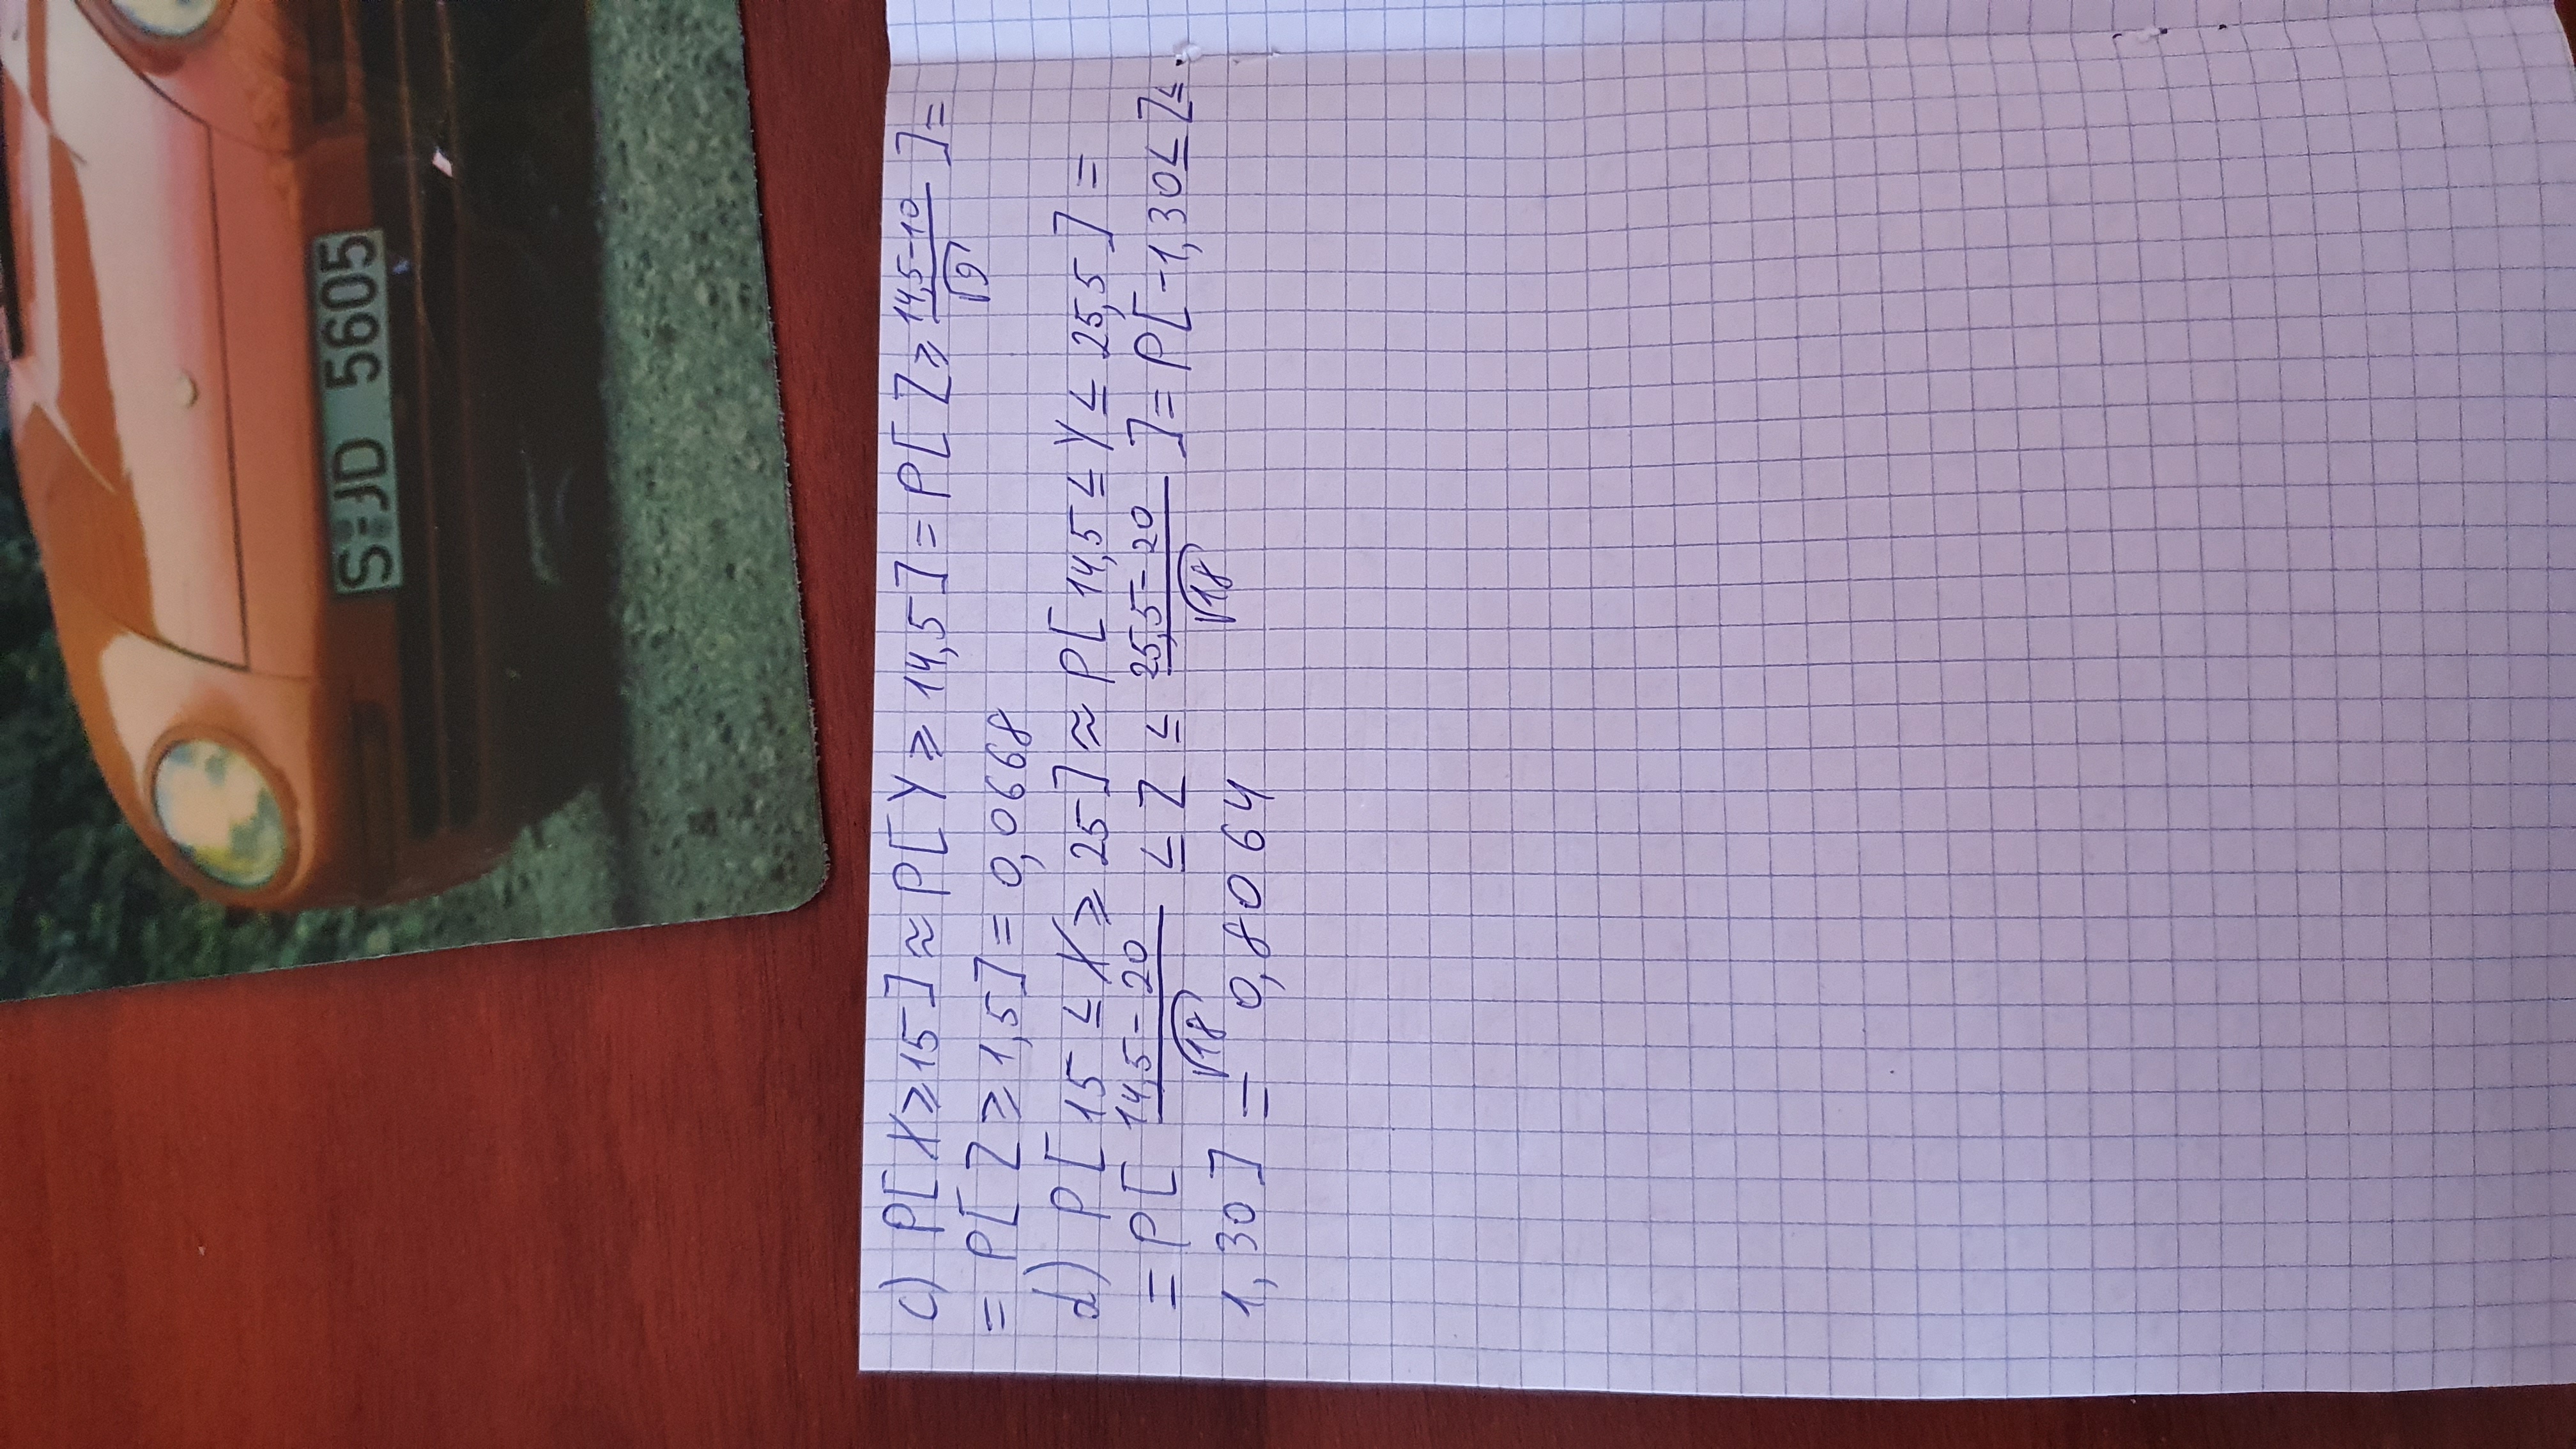 S-JD 5605
c) P[X ≥ 15] ≈ P[Y ≥ 14,5] = P[Z ≥ (14,5-10)/√9] =
= P[Z ≥ 1,5] = 0,0668
d) P[15 ≤ X ≥ 25] ≈ P[14,5 ≤ Y ≤ 25,5] =
= P[(14,5-20)/√18 ≤ Z ≤ (25,5-20)/√18] = P[-1,30 ≤ Z ≤
1,30] = 0,8064